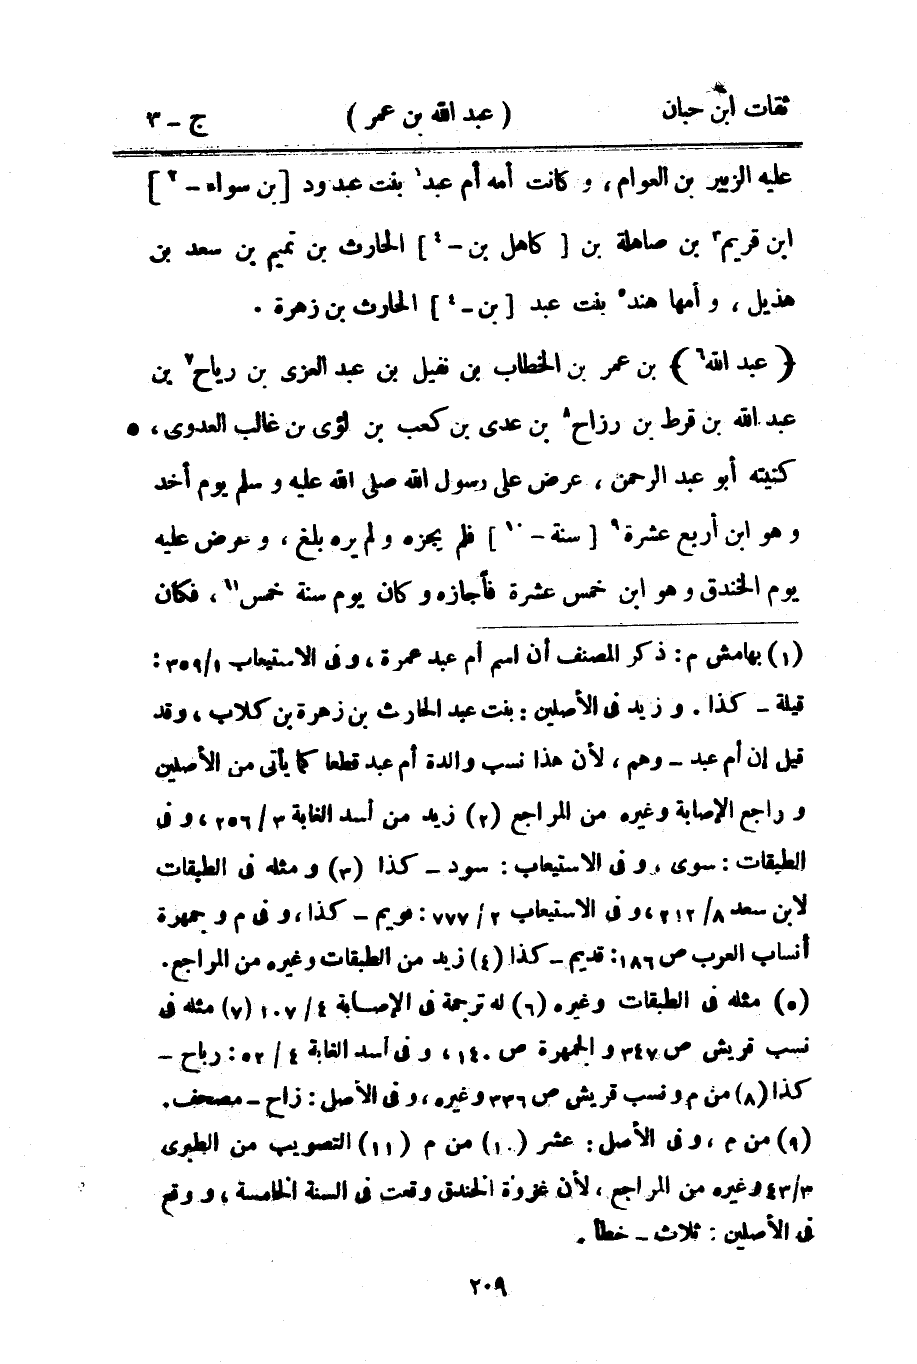 ثقات ابن حبان ( عبد الله بن عمر ) ج – ٣
عليه الزبير بن العوام ، و كانت أمه أم عبد١ بنت عبد ود [ بن سواء – ٢ ]
ابن قريم٣ بن صاهلة بن [ كاهل بن – ٤ ] الحارث بن تميم بن سعد بن
هذيل ، و أمها هند٥ بنت عبد [ بن – ٤ ] الحارث بن زهرة .
﴿ عبد الله٦ ﴾ بن عمر بن الخطاب بن نفيل بن عبد العزى بن رياح٧ بن
عبد الله بن قرط بن رزاح٨ بن عدى بن كعب بن لؤى بن غالب العدوى ، ٥
كنيته أبو عبد الرحمن ، عرض على رسول الله صلى الله عليه و سلم يوم أحد
و هو ابن أربع عشرة٩ [ سنة – ١٠ ] فلم يجزه و لم يره بلغ ، و عرض عليه
يوم الخندق و هو ابن خمس عشرة فأجازه و كان يوم سنة خمس١١ ، فكان
(١) بهامش م : ذكر المصنف أن اسم أم عبد عمرة ، و فى الاستيعاب ٣٥٩/١ :
قيلة – كذا . و زيد فى الأصلين : بنت عبد الحارث بن زهرة بن كلاب ، وقد
قيل إن أم عبد – وهم ، لأن هذا نسب والدة أم عبد قطعا كما يأتى من الأصلين
و راجع الإصابة وغيره من المراجع (٢) زيد من أسد الغابة ٣ / ٢٥٦ ، و فى
الطبقات : سوى ، و فى الاستيعاب : سود – كذا (٣) و مثله فى الطبقات
لابن سعد ٨/ ٢١٢ ، و فى الاستيعاب ٢ / ٧٧٧ : قويم – كذا ، و فى م و جمهرة
أنساب العرب ص ١٨٦ : قديم – كذا (٤) زيد من الطبقات وغيره من المراجع .
(٥) مثله فى الطبقات وغيره (٦) له ترجمة فى الإصابة ٤ / ١٠٧ (٧) مثله فى
نسب قريش ص ٣٤٧ و الجمهرة ص ١٤٠ ، و فى أسد الغابة ٤ / ٥٢ : رباح –
كذا (٨) من م و نسب قريش ص ٣٣٦ وغيره ، و فى الأصل : زاح – مصحف .
(٩) من م ، و فى الأصل : عشر (١٠) من م (١١) التصويب من الطبرى
٤٣/٣ وغيره من المراجع ، لأن غزوة الخندق وقعت فى السنة الخامسة ، و وقع
فى الأصلين : ثلاث – خطأ .
٢٠٩